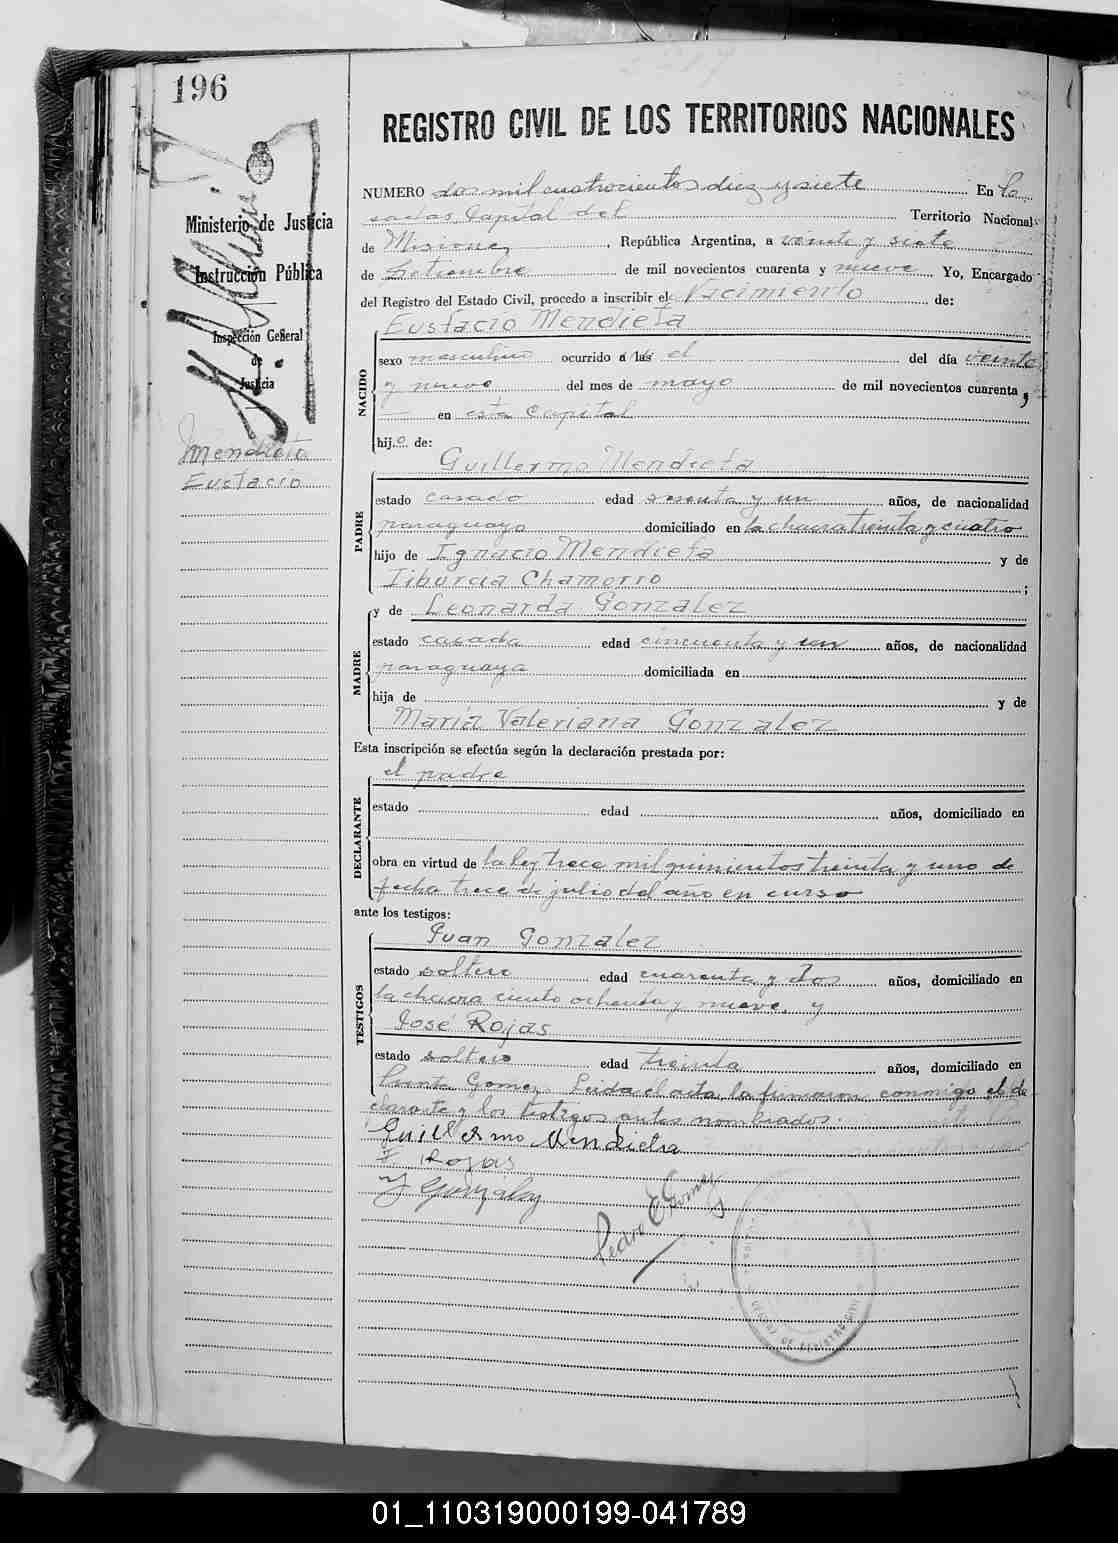 196
REGISTRO CIVIL DE LOS TERRITORIOS NACIONALES
Ministerio de Justicia
Instrucción Pública
Inspección General
de
Justicia
Mendieta
Eustacio
NUMERO dos mil cuatrocientos diez y siete En
sadas Capital del Territorio Nacional
de Misiones, República Argentina, a veinte y siete
de Setiembre de mil novecientos cuarenta y nueve Yo, Encargado
del Registro del Estado Civil, procedo a inscribir el Nacimiento de:
Eustacio Mendieta
NACIDO
sexo masculino ocurrido a las el del día veinte
y nueve del mes de mayo de mil novecientos cuarenta,
— en esta Capital
hijo de:
Guillermo Mendieta
PADRE
estado casado edad sesenta y un años, de nacionalidad
paraguayo domiciliado en la chacra treinta y cuatro
hijo de Ignacio Mendieta y de
Tiburcia Chamorro;
y de Leonarda Gonzalez
MADRE
estado casada edad cincuenta y un años, de nacionalidad
paraguaya domiciliada en
hija de y de
María Valeriana Gonzalez
Esta inscripción se efectúa según la declaración prestada por:
el padre
DECLARANTE
estado edad años, domiciliado en
obra en virtud de la ley trece mil quinientos treinta y uno de
fecha trece de julio del año en curso
ante los testigos:
Juan Gonzalez
TESTIGOS
estado soltero edad cuarenta y dos años, domiciliado en
la chacra ciento ochenta y nueve, y
José Rojas
estado soltero edad treinta años, domiciliado en
Punta Gomez. Leida el acta, la firmaron conmigo el de
clarante y los testigos antes nombrados.
Guillermo Mendieta
Rojas
J Gonzalez
Pedro E Gomez
DE REGISTRO CIVIL
01_110319000199-041789